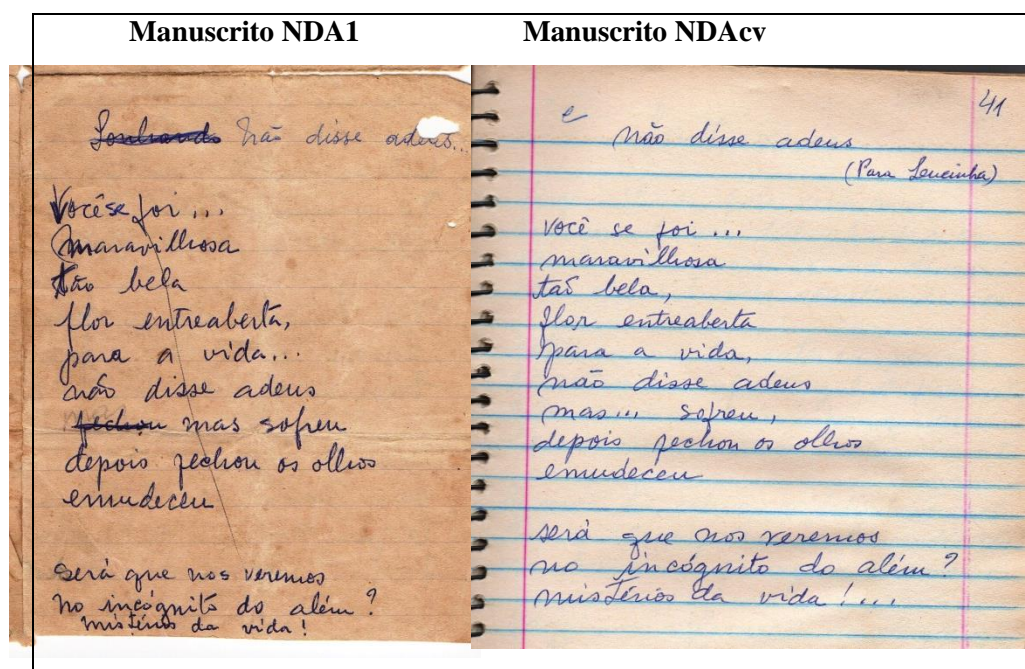 Manuscrito NDA1
Não disse adeus...
Você se foi...
maravilhosa
tão bela
flor entreaberta,
para a vida...
não disse adeus
fechou mas sofreu
depois fechou os olhos
emudeceu
será que nos veremos
no incógnito do além?
mistérios da vida!
Manuscrito NDAcv
41
e
não disse adeus
(Para Leucinha)
você se foi...
maravilhosa
tão bela,
flor entreaberta
para a vida,
não disse adeus
mas... sofreu,
depois fechou os olhos
emudeceu
será que nos veremos
no incógnito do além?
mistérios da vida!...